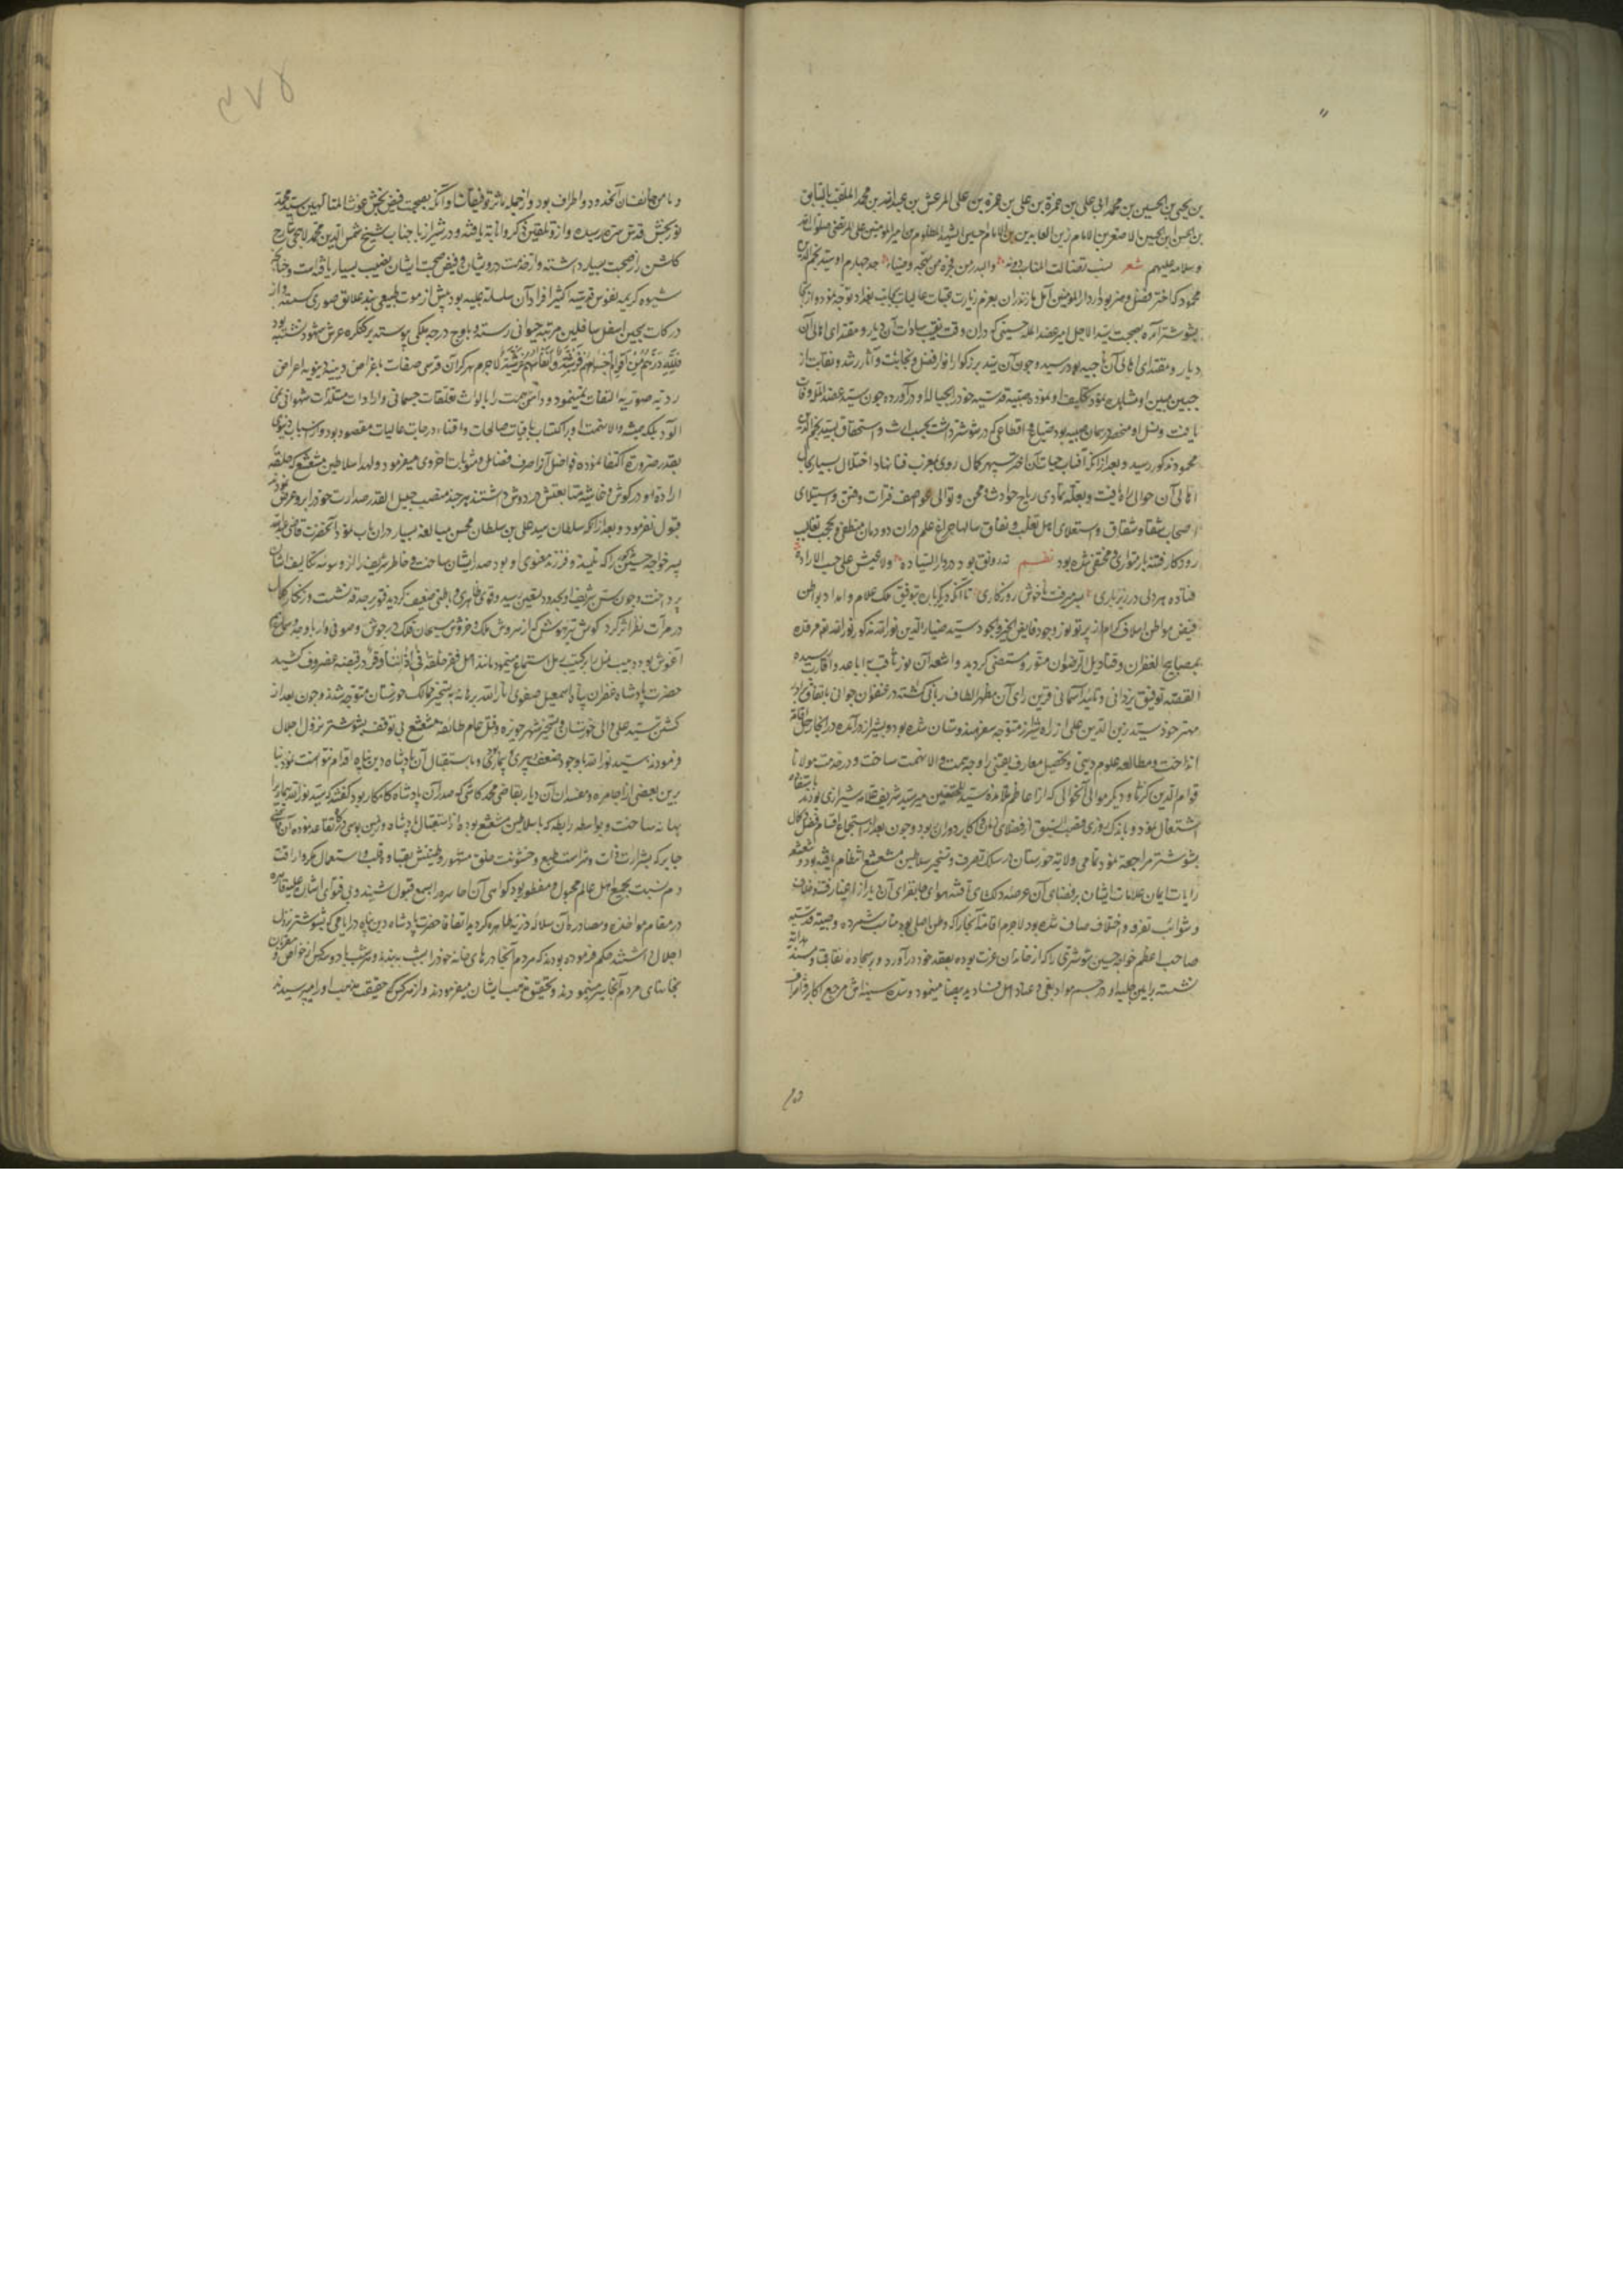 بن یحیی بن الحسین بن محمد ابی علی بن حمزة بن علی بن حمزة بن علی المرعش بن عبدالله بن محمد الملقب بالسابق
بن الحسن بن الحسین الاصغر بن الامام زین العابدین بن الامام حسین الشهید المظلوم بن امیرالمؤمنین علی المرتضی صلوات الله
وسلامه علیهم شعر نسب تضالت المناسب دونه والبدر من فخره من بهجة وضیاء جد چهارم او سید نجم الدین
محمود که اختر فضل و هنر بود از دار المؤمنین آمل مازندران بعزم زیارت عتبات عالیات بجانب بغداد توجه نموده و از آنجا
بشوشتر آمده بصحبت سید الاجل امیر عضد المله حسینی که دران وقت نقیب سادات آن دیار و مقتدای اهالی آن
دیار و مقتدای اهالی آن بود رسید و چون آن سید بزرگوار انوار فضل و نجابت و آثار رشد و نقابت از
جبین مبین او مشاهده نمود تکلیف او نموده صبیه قدسیه خود را بحباله او در آورده و چون سید عضد المله وفات
یافت و نسل او منحصر در همان صبیه بود ضیاع و اقطاعی که در شوشتر داشت بحسب ارث و استحقاق بسید نجم الدین
محمود مذکور رسید و بعد از آنکه آفتاب حیات آن اختر سپهر کمال روی بمغرب فنا نهاد اختلال بسیار بحال
اهالی آن حوالی راه یافت و بعلت تمادی ریاح حوادث و محن و توالی عواصف فترات و فتن و استیلای
اصحاب شقا و شقاق و استعلای اهل تغلب و نفاق سالها چراغ علم دران دودمان منطفی و بحجب تغالیب
روزگار فتنه بار متواری و مختفی شده بود نظم نه رونق بود در دار السیاده ولا عیش علی حسب الاراده
فتاده هر دلی در زیر باری بسر میرفت ناخوش روزگاری تا آنکه دیگر باره بتوفیق ملک علام و امداد بواطن
فیض مواطن اسلاف کرام از پرتو نور وجود فایض الخیر والجود سید ضیاء الدین نورالله مذکور نورالله مرقده
بمصابیح الغفران و قنادیل الرضوان منور و مستضی گردید و اشعه آن نور ثاقب باباعد و اقارب رسیده
القصه توفیق یزدانی و تأیید آسمانی قرین رای آن مظهر الطاف ربانی گشته در عنفوان جوانی باتفاق برادر
مهتر خود سید زین الدین علی از راه شیراز متوجه سفر هندوستان شده بود و بشیراز در آمده در آنجا رحل اقامت
انداخت و مطالعه علوم دینی و تحصیل معارف یقینی را وجه همت والا نهمت ساخت و در خدمت مولانا
قوام الدین کربالی و دیگر موالی آنحوالی که از اعاظم تلامذه سید المحققین میر سید شریف علامه شیرازی بودند باستفاده
اشتغال نمود و باندک روزی قصب السبق از فضلای زمان و اکابر دوران ربود و چون بعد از استجماع اقسام فضل و کمال
بشوشتر مراجعت نمود تمامی ولایت خوزستان در سلک تصرف و تسخیر سلاطین مشعشع انتظام یافته بود و شعشعه
رایات ایمان علامات ایشان بر فضای آن عرصه دلگشای تافته هوای جانفزای آن دیار از غبار فتنه و خلاف
و شوائب تفرقه و اختلاف صاف شده بود لاجرم اقامت آنجا را که وطن اصلی بود مناسب شمرده و صبیه قدسیه
صاحب اعظم خواجه حسین شوشتری را که از خاندان عزت بوده بعقد خود در آورد و بر سجاده نقابت و مسند هدایت
نشسته براهین جلیه او در حسم مواد بغی و عناد اهل فساد ید بیضا مینمود و سده سنیه‌اش مرجع اکابر و اشراف
و مأمن خائفان آنحدود و اطراف بود و از جمله مآثر توفیقات او آنکه بصحبت فیض بخش غوث المتألهین سید محمد
نوربخش قدس سره رسیده و از و تلقین ذکر و انابة یافته و در شیراز با جناب شیخ شمس الدین محمد لاهجی شارح
گلشن راز صحبت بسیار داشته و از خدمت درویشان و فیض صحبت ایشان نصیب بسیار یافته و چنانچه
شیوه کریمه نفوس قدسیه اکثر افراد آن سلسله علیه بود پیش از موت طبیعی بند علائق صوری گسسته و از
درکات سجین اسفل سافلین مرتبه حیوانی رسته و باوج درجه ملکی پیوسته بر کنگره عرش شهود نشسته بود
فلله درهم من اقوام اجسامهم فرشیة و انفاسهم عرشیة لاجرم هرگز آن قدسی صفات باغراض دنیه دنیویه و اعراض
ردیه صوریه التفات نمینمود و دامن همت را بالواث تعلقات جسمانی و ارادات مستلذات شهوانی نمی
آلود بلکه همیشه والا نهمت او بر اکتساب باقیات صالحات و اقتناء درجات عالیات مقصود بود و از اسباب دنیوی
بقدر ضرورت اکتفا نموده فواضل آنرا صرف فضائل و مثوبات اخروی میفرمود و لهذا سلاطین مشعشع که حلقه
ارادة او در گوش و غاشیه متابعتش بر دوش داشتند هر چند منصب جلیل القدر صدارت خود را برو عرض نمودند
قبول نفرمود و بعد از آنکه سلطان سید علی بن سلطان محسن مبالغه بسیار دران باب نمود آنحضرت قاضی عبدالله
پسر خواجه حسین مذکور را که تلمیذ و فرزند معنوی او بود صدر ایشان ساخت و خاطر شریف را از وسوسه تکالیف ایشان
پرداخت و چون سن شریف او بحدود تسعین رسید و قوای ظاهری و باطنی ضعیف گردیده فتور بر حدقه نشست و زنگار کلال
در مرآت نظر اثر کرد گوش تیز هوشش که از سروش ملک و خروش مسبحان فلک در جوش و صوفی وار با وجد و سماع هم
آغوش بود
حضرت پادشاه غفران پناه شاه اسمعیل صفوی انار الله برهانه به تسخیر ممالک خوزستان متوجه شدند و چون بعد از
کشتن سید علی والی خوزستان و تسخیر شهر حویزه و قتل عام طائفه مشعشع بی توقف بشوشتر نزول اجلال
فرمودند سید نورالله با وجود ضعف پیری و بیماری باستقبال آن پادشاه دین پناه اقدام نتوانست نمود بنا
برین بعضی از اجامره و مفسدان آن دیار بقاضی محمد کاشی که صدر آن پادشاه کامکار بود گفتند که سید نورالله بیماری را
بهانه ساخت و بواسطه رابطه که با سلاطین مشعشع بوده از استقبال پادشاه و زمین بوسی درگاه تقاعد نموده آن قاضی
جابر که بشرارت ذات و شراست طبع و خشونت خلق مشهور و طینتش بقساوت قلب و استعمال مکر و اراقت
دم نسبت بجمیع اهل عالم مجبول و مفطور بود گواهی آن جماعت را بسمع قبول شنید و بی فتوای ایشان علیه قاهره
در مقام مواخذه و مصادره آن سلاله ذریه طاهره گردید اتفاقا حضرت پادشاه دین پناه در ایامی که بشوشتر نزول
اجلال داشتند حکم فرموده بودند که مردم آنجا درهای خانه خود را شب نه بندند و هر شب با دو سه کس از خواص و مقربان
بخانهای مردم آنجا سیر مینمودند و تحقیق مذهب ایشان میفرمودند و از هر کس که حقیقت مذهب او را می پرسیدند